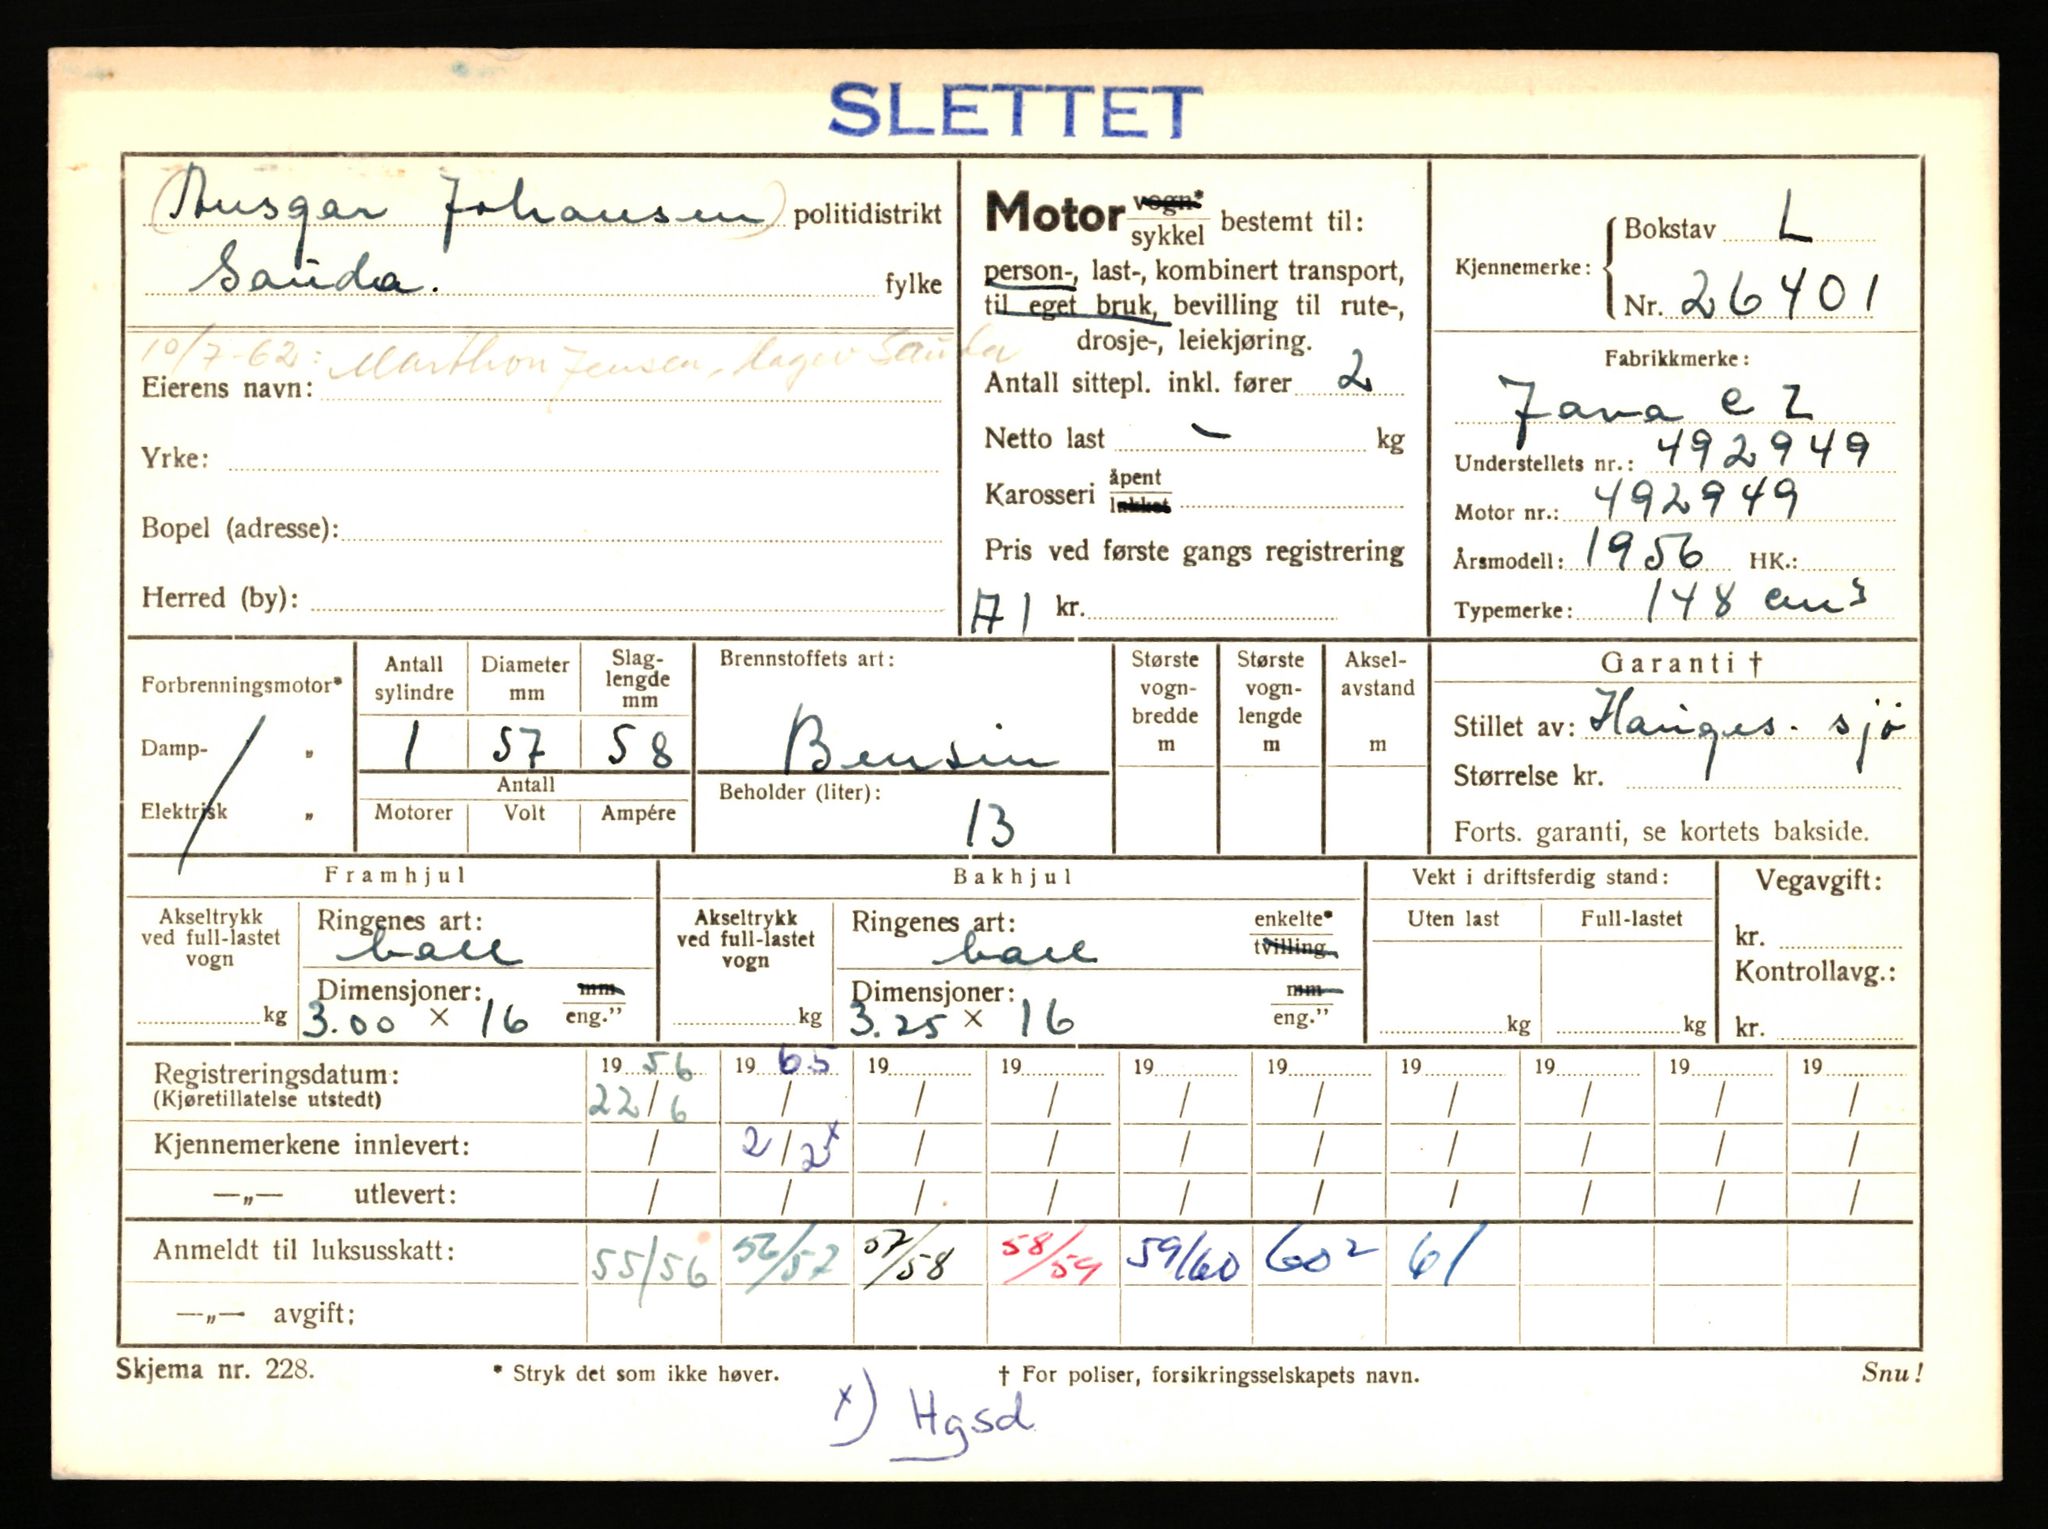 SLETTET
(Ansgar Johansen) politidistrikt
Sauda. fylke
10/7-62: Marthon Jensen, Sauda
Eierens navn:
Yrke:
Bopel (adresse):
Herred (by):
Motor vogn*
sykkel bestemt til:
person-, last-, kombinert transport,
til eget bruk, bevilling til rute-,
drosje-, leiekjøring.
Antall sittepl. inkl. fører 2
Netto last – kg
Karosseri åpent
lukket
Pris ved første gangs registrering
A1 kr.
Kjennemerke: Bokstav L
Nr. 26401
Fabrikkmerke:
Java c Z
Understellets nr.: 492949
Motor nr.: 492949
Årsmodell: 1956 HK.:
Typemerke: 148 cm3
Forbrenningsmotor*
Damp- „
Elektrisk „
Antall sylindre Diameter mm Slaglengde mm
1 57 58
Antall
Motorer Volt Ampére
Brennstoffets art:
Bensin
Beholder (liter):
13
Største vognbredde m
Største vognlengde m
Akselavstand m
Garanti †
Stillet av: Hauges. sjø
Størrelse kr.
Forts. garanti, se kortets bakside.
Framhjul
Akseltrykk ved full-lastet vogn
kg
Ringenes art:
ball
Dimensjoner: mm
3.00 × 16 eng.”
Bakhjul
Akseltrykk ved full-lastet vogn
kg
Ringenes art: enkelte*
ball tvilling
Dimensjoner: mm
3.25 × 16 eng.”
Vekt i driftsferdig stand:
Uten last Full-lastet
kg kg
Vegavgift:
kr.
Kontrollavg.:
kr.
Registreringsdatum: 19 56 19 65 19 19 19 19 19 19 19 19
(Kjøretillatelse utstedt) 22/6 / / / / / / / / /
Kjennemerkene innlevert: / 2/2x / / / / / / / /
—„— utlevert: / / / / / / / / / /
Anmeldt til luksusskatt: 55/56 56/57 57/58 58/59 59/60 60² 61
—„— avgift:
Skjema nr. 228. * Stryk det som ikke høver. † For poliser, forsikringsselskapets navn. Snu!
x) Hgsd